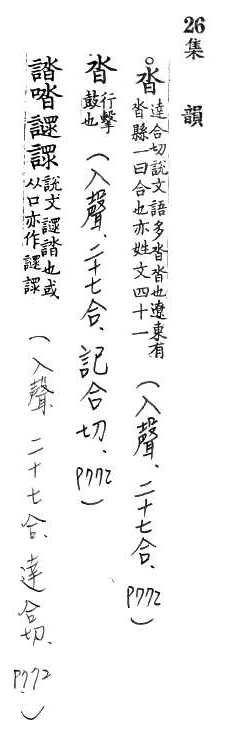 26 集韻
。沓 達合切說文語多沓沓也遼東有
沓縣一曰合也亦姓文四十一
(入聲、二十七合、P772)
沓 行擊
鼓也
(入聲、二十七合、記合切、P772)
誻 說文 誻也或
从口亦作
(入聲、二十七合、達合切、P772)